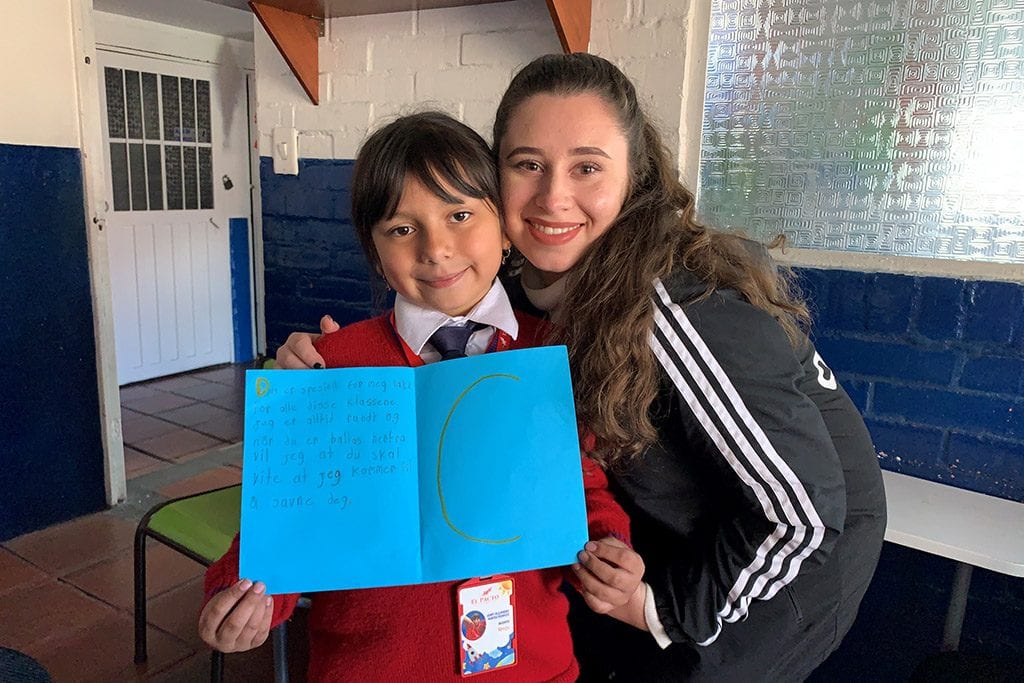 Du er spesiell for meg
for alle disse klassene
jeg er alltid rundt og
når du er borte
vil jeg at du skal
vite at jeg kommer til
å savne deg.
C
EL PACTO